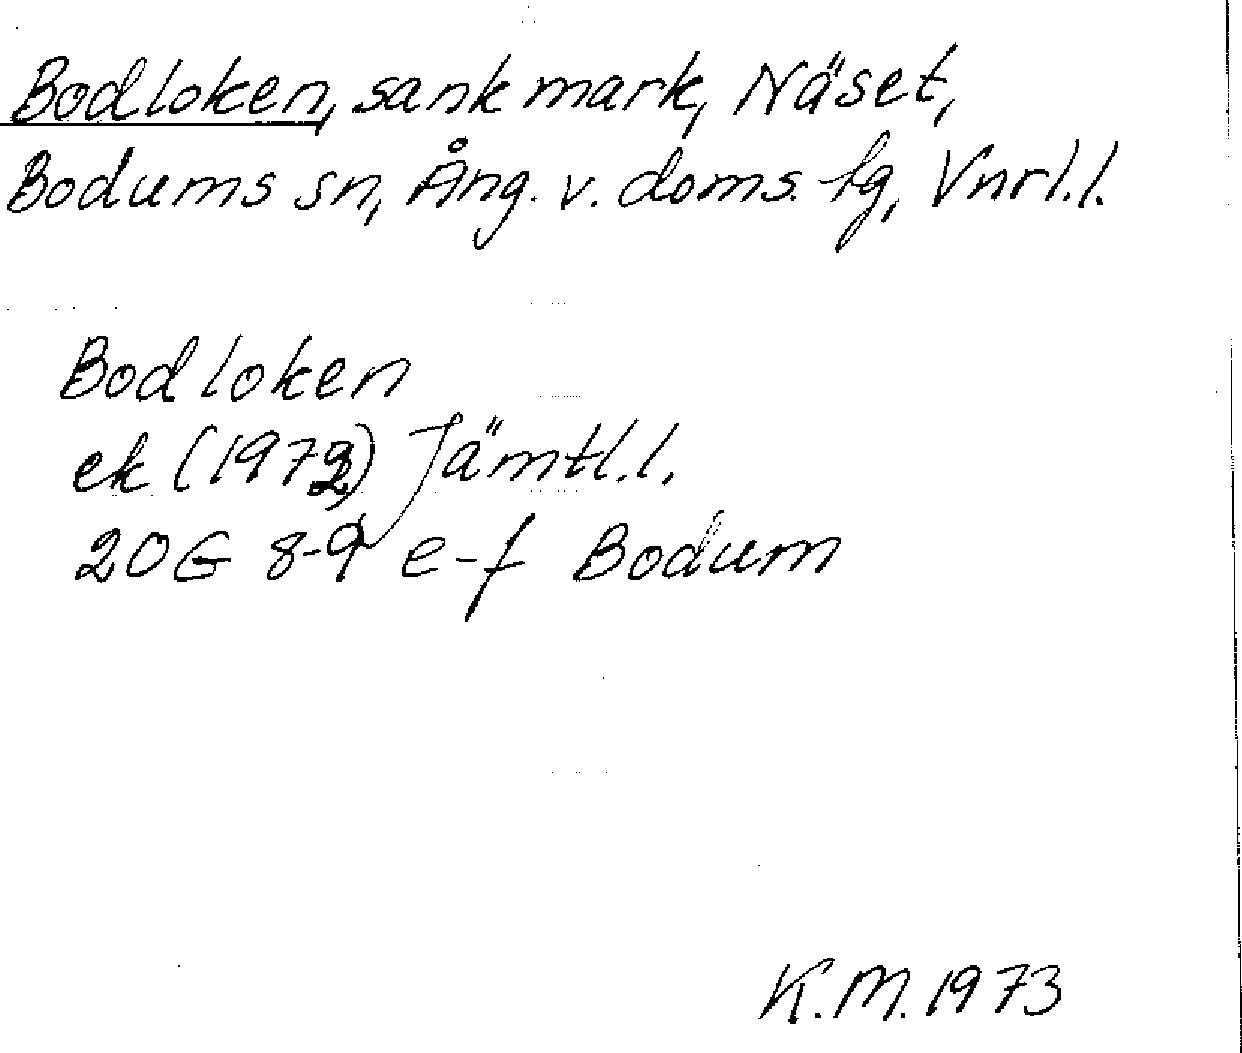 Bodloken, sank mark, Näset,
Bodums sn, Ång. v. doms. fg, Vnrl.l.
Bodloken
ek (1972) Jämtl.l.
20G 8-9 e-f Bodum
K.M. 1973